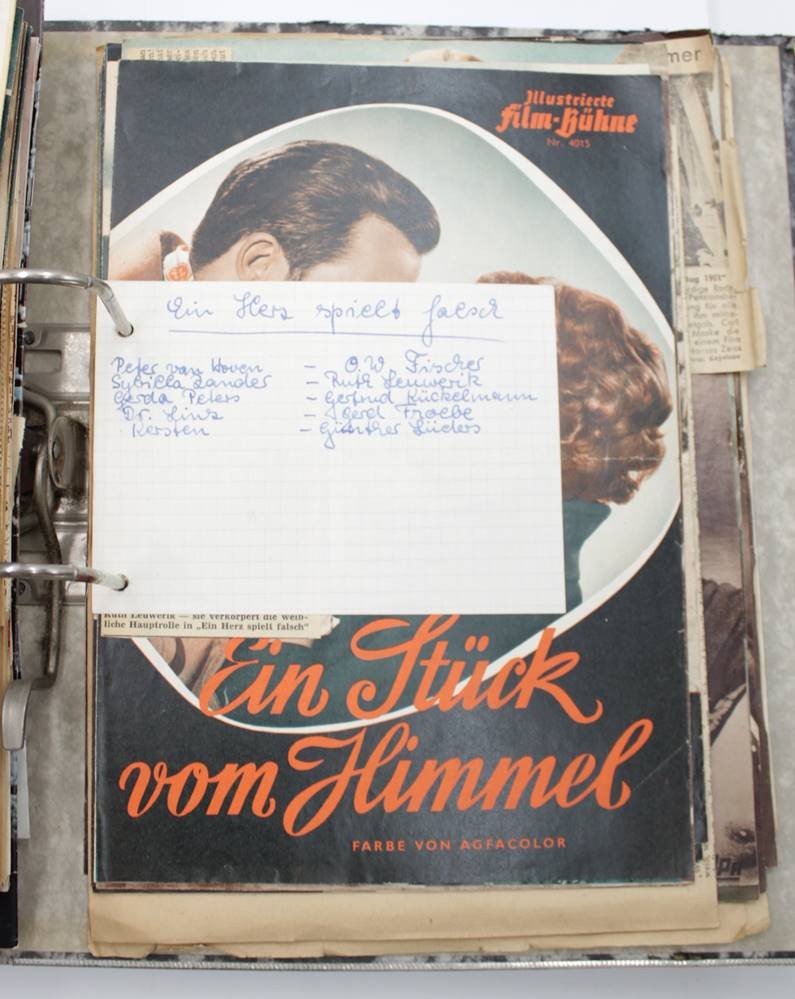 mer
Illustrierte
Film-Bühne
Nr. 4015
Ein Herz spielt falsch
Peter van Hoven – O.W. Fischer
Sybilla Zander – Ruth Leuwerik
Gerda Peters – Gertrud Kückelmann
Dr. Linz – Gerd Froebe
Kersten – Günther Lüders
Ruth Leuwerik — sie verkörpert die weib-
liche Hauptrolle in „Ein Herz spielt falsch"
Ein Stück
vom Himmel
FARBE VON AGFACOLOR